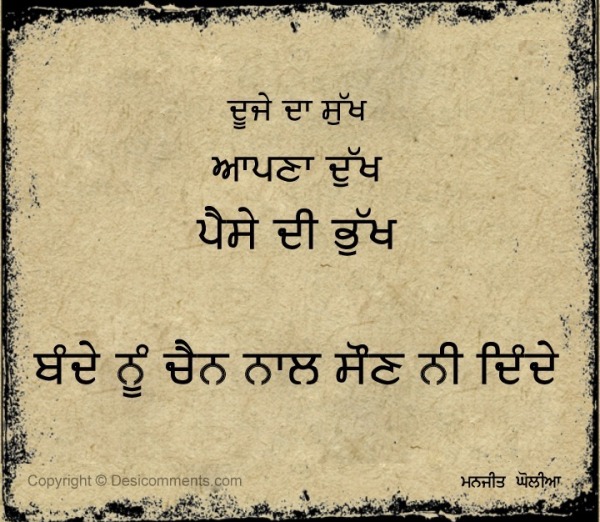 ਦੂਜੇ ਦਾ ਸੁੱਖ
ਆਪਣਾ ਦੁੱਖ
ਪੈਸੇ ਦੀ ਭੁੱਖ
ਬੰਦੇ ਨੂੰ ਚੈਨ ਨਾਲ ਸੌਣ ਨੀ ਦਿੰਦੇ
Copyright © Desicomments.com
ਮਨਜੀਤ ਘੋਲੀਆ